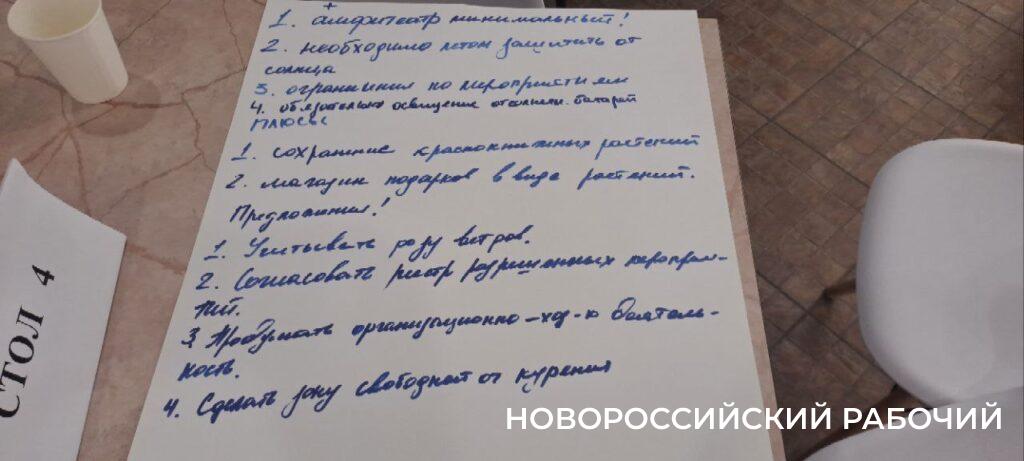 +
1. амфитеатр минимальный!
2. необходимо летом защитить от
солнца
3. ограничения по мероприятиям
4. обязательно освещение от солнечн. батарей
ПЛЮСЫ
1. сохранение краснокнижных растений
2. магазин подарков в виде растений.
Предложения!
1. Учитывать розу ветров.
2. Согласовать реестр разрешенных мероприя-
тий.
3 Продумать организационно-хоз-ю деятель-
ность.
4. Сделать зону свободной от курения
СТОЛ 4
НОВОРОССИЙСКИЙ РАБОЧИЙ